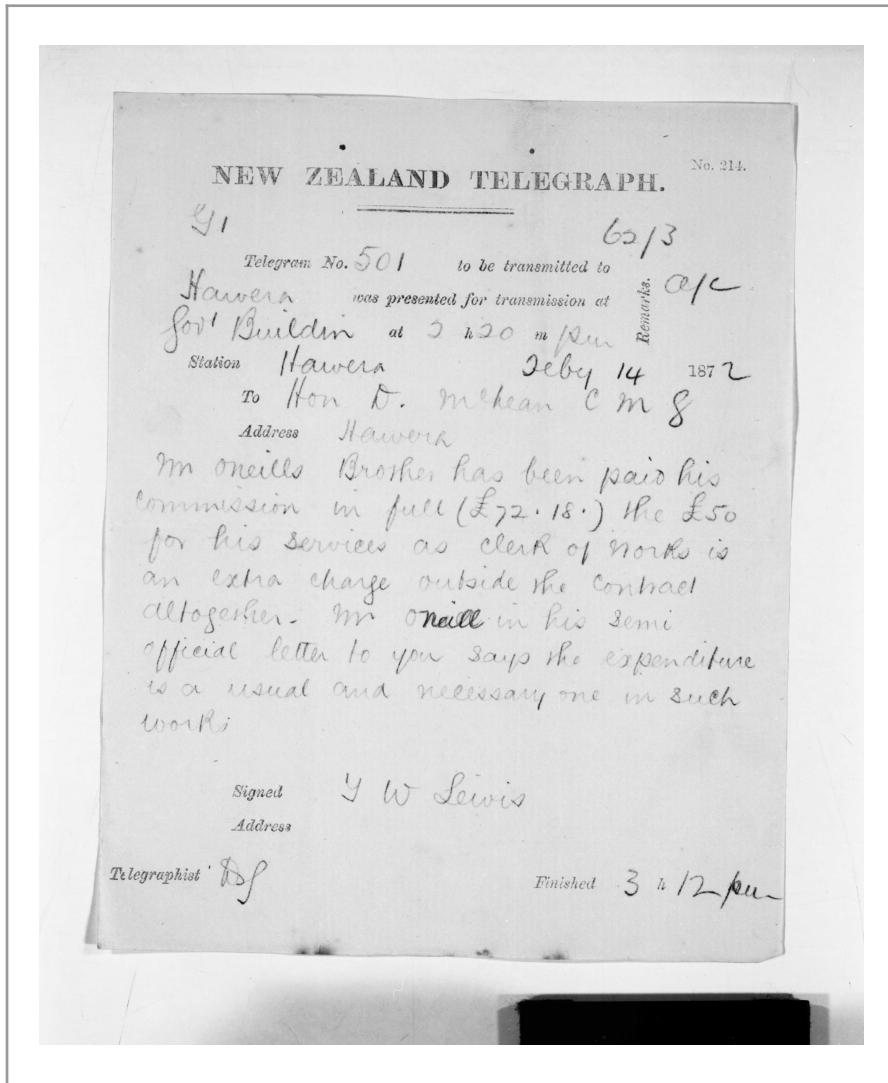 No. 214.
NEW ZEALAND TELEGRAPH.
G1
62/3
Telegram No. 501 to be transmitted to
Hawera was presented for transmission at
Remarks. a/c
Govt Buildin at 2 h 20 m pm
Station Hawera Feby 14 1872
To Hon D. McLean C M G
Address Hawera
Mr Oneills Brother has been paid his
Commission in full (£72.18.) the £50
for his services as clerk of works is
an extra charge outside the contract
altogether. Mr Oneill in his semi
official letter to you says the expenditure
is a usual and necessary one in such
works
Signed W Lewis
Address
Telegraphist
Finished 3 h 12 pm